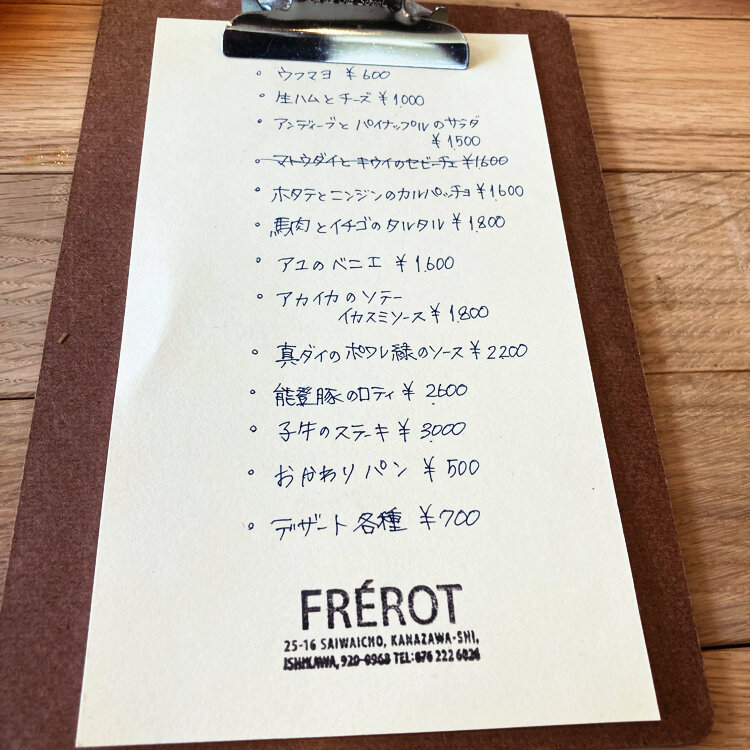 ・ウフマヨ ¥600
・生ハムとチーズ ¥1,000
・アンディーブと パイナップルのサラダ
¥1,500
・マトウダイと キウイのセビーチェ ¥1600
・ホタテとニンジンのカルパッチョ ¥1,600
・馬肉とイチゴのタルタル ¥1,800
・アユのベニエ ¥1,600
・アカイカのソテー
イカスミソース ¥1,800
・真ダイのポワレ緑のソース ¥2200
・能登豚のロティ ¥2600
・子牛のステーキ ¥3,000
・おかわりパン ¥500
・デザート各種 ¥700
FRÉROT
25-16 SAIWAICHO, KANAZAWA-SHI,
ISHIKAWA, 920-0968 TEL: 076 222 6024